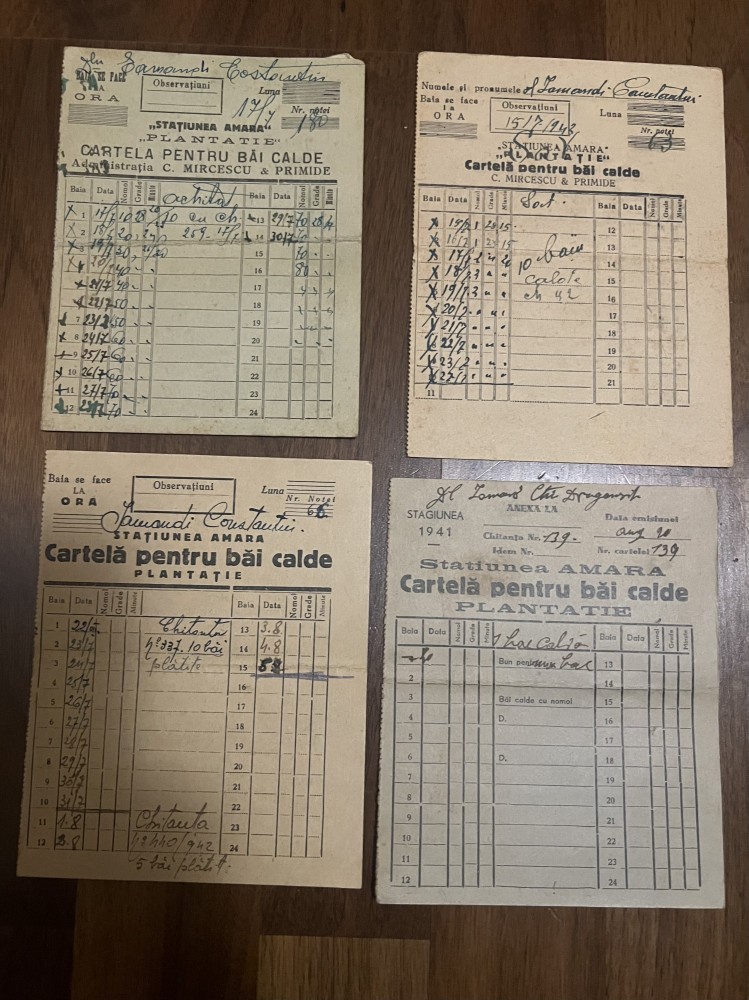 Dlu Iamandi Costantin
BAIA SE FACE
LA
ORA
Observațiuni
Luna
17/7
Nr. notei
180
„STAȚIUNEA AMARA"
„PLANTAȚIE"
CARTELA PENTRU BĂI CALDE
Administrația C. MIRCESCU & PRIMIDE
Baia Data Nomol Grade Minute achitat Baia Data Nomol Grade Minute
1 17/7 10 28 20 13 29/7 70 28
2 18/7 20 259 17/7 14 30/7 70
19/7 30 15 70
20/7 40 16 80
21/7 40 17
22/7 50 18
7 23/7 50 19
8 24/7 60 20
9 25/7 60 21
10 26/7 60 22
11 27/7 70 23
12 28/7 70 24
Numele și pronumele Iamandi Constantin
Baia se face
la
ORA
Observațiuni
15/7/943
Luna
Nr. notei
63
„STAȚIUNEA AMARA"
„PLANTAȚIE"
Cartela pentru băi calde
C. MIRCESCU & PRIMIDE
Baia Data Nomol Grade Minute Baia Data Nomol Grade Minute
15/7 1 28 15 12
16/7 1 28 15 13
17/7 2 10 băi 14
18/7 3 15
19/7 3 16
20/7 17
21/7 18
22/7 19
23/7 20
21
11
Baia se face
LA
ORA
Observațiuni
Luna
Nr. Notei
66
Iamandi Constantin
STAȚIUNEA AMARA
Cartelă pentru băi calde
PLANTAȚIE
Baia Data Nomol Grade Minute Baia Data Nomol Grade Minute
1 22/7 Chitanta 13 3.8
2 23/7 No 337 10 băi 14 4.8
3 24/7 plătite 15 5.8
4 25/7 16
5 26/7 17
6 27/7 18
7 28/7 19
8 29/7 20
9 30/7 21
10 31/7 22
11 1.8 Chitanta 23
12 2.8 12440/942 24
5 băi plătit.
STAGIUNEA
1941
ANEXA LA
Chitanța Nr. 139
Idem Nr.
Data emisiunei
aug 20
Nr. cartelei 139
Stațiunea AMARA
Cartelă pentru băi calde
PLANTAȚIE
Baia Data Nomol Grade Minute Baia Data Nomol Grade Minute
Bun pentru 13
2 14
3 Băi calde cu nomol 15
4 D. 16
5 17
6 D. 18
7 19
8 20
9 21
10 22
11 23
12 24